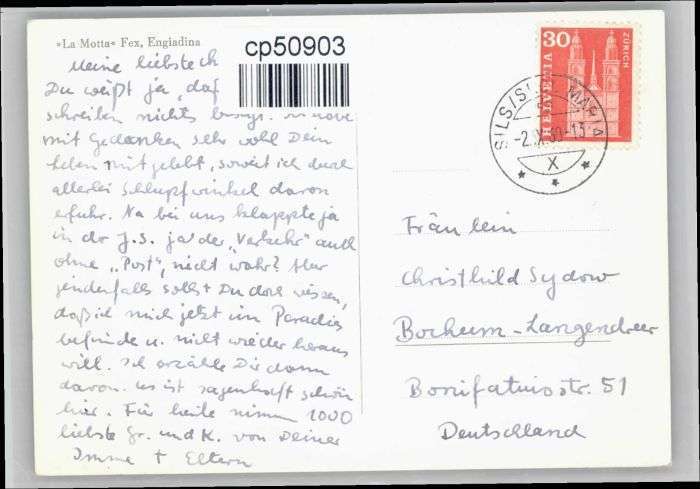 »La Motta« Fex, Engiadina
cp50903
Meine liebste Ch
Du weißt ja, daß
schreiben nichts
mit Gedanken sehr wohl Dein
Leben mitgelebt, soweit ich durch
allerlei Schlupfwinkel davon
erfuhr. Na bei uns klappte ja
in der J.S. ja der „Verkehr" auch
ohne „Post", nicht wahr? Aber
jedenfalls sollst Du doch wissen,
daß ich mich jetzt im Paradies
befinde u. nicht wieder heraus
will. Ich erzähle Dir dann
davon. Es ist sagenhaft schön
hier. Für heute nimm 1000
liebste Gr. und K. von Deiner
Imme + Eltern
30
HELVETIA
ZÜRICH
SILS/SILS MARIA
-2.X.60-13
X
Fräulein
Christhild Sydow
Bochum-Langendreer
Bonifatiusstr. 51
Deutschland